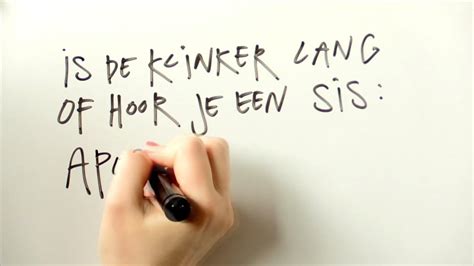 is DE KLiNKER LANG
OF HOOR JE EEN SiS: